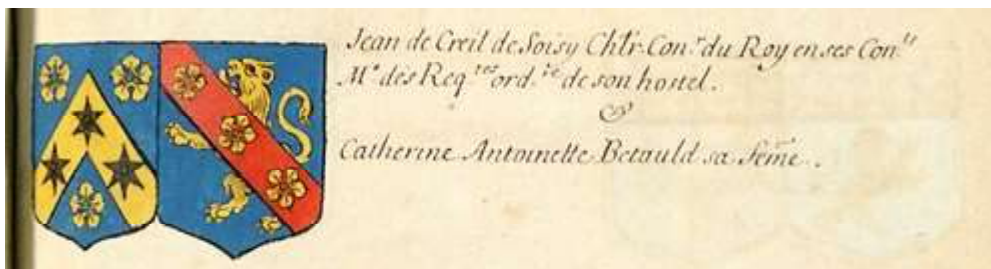 Jean de Creil de Soisy Chlr. Con.r du Roy en ses Con.ls
M.e des Req.tes ord.re de son hostel.
&
Catherine Antoinette Betauld sa feme.